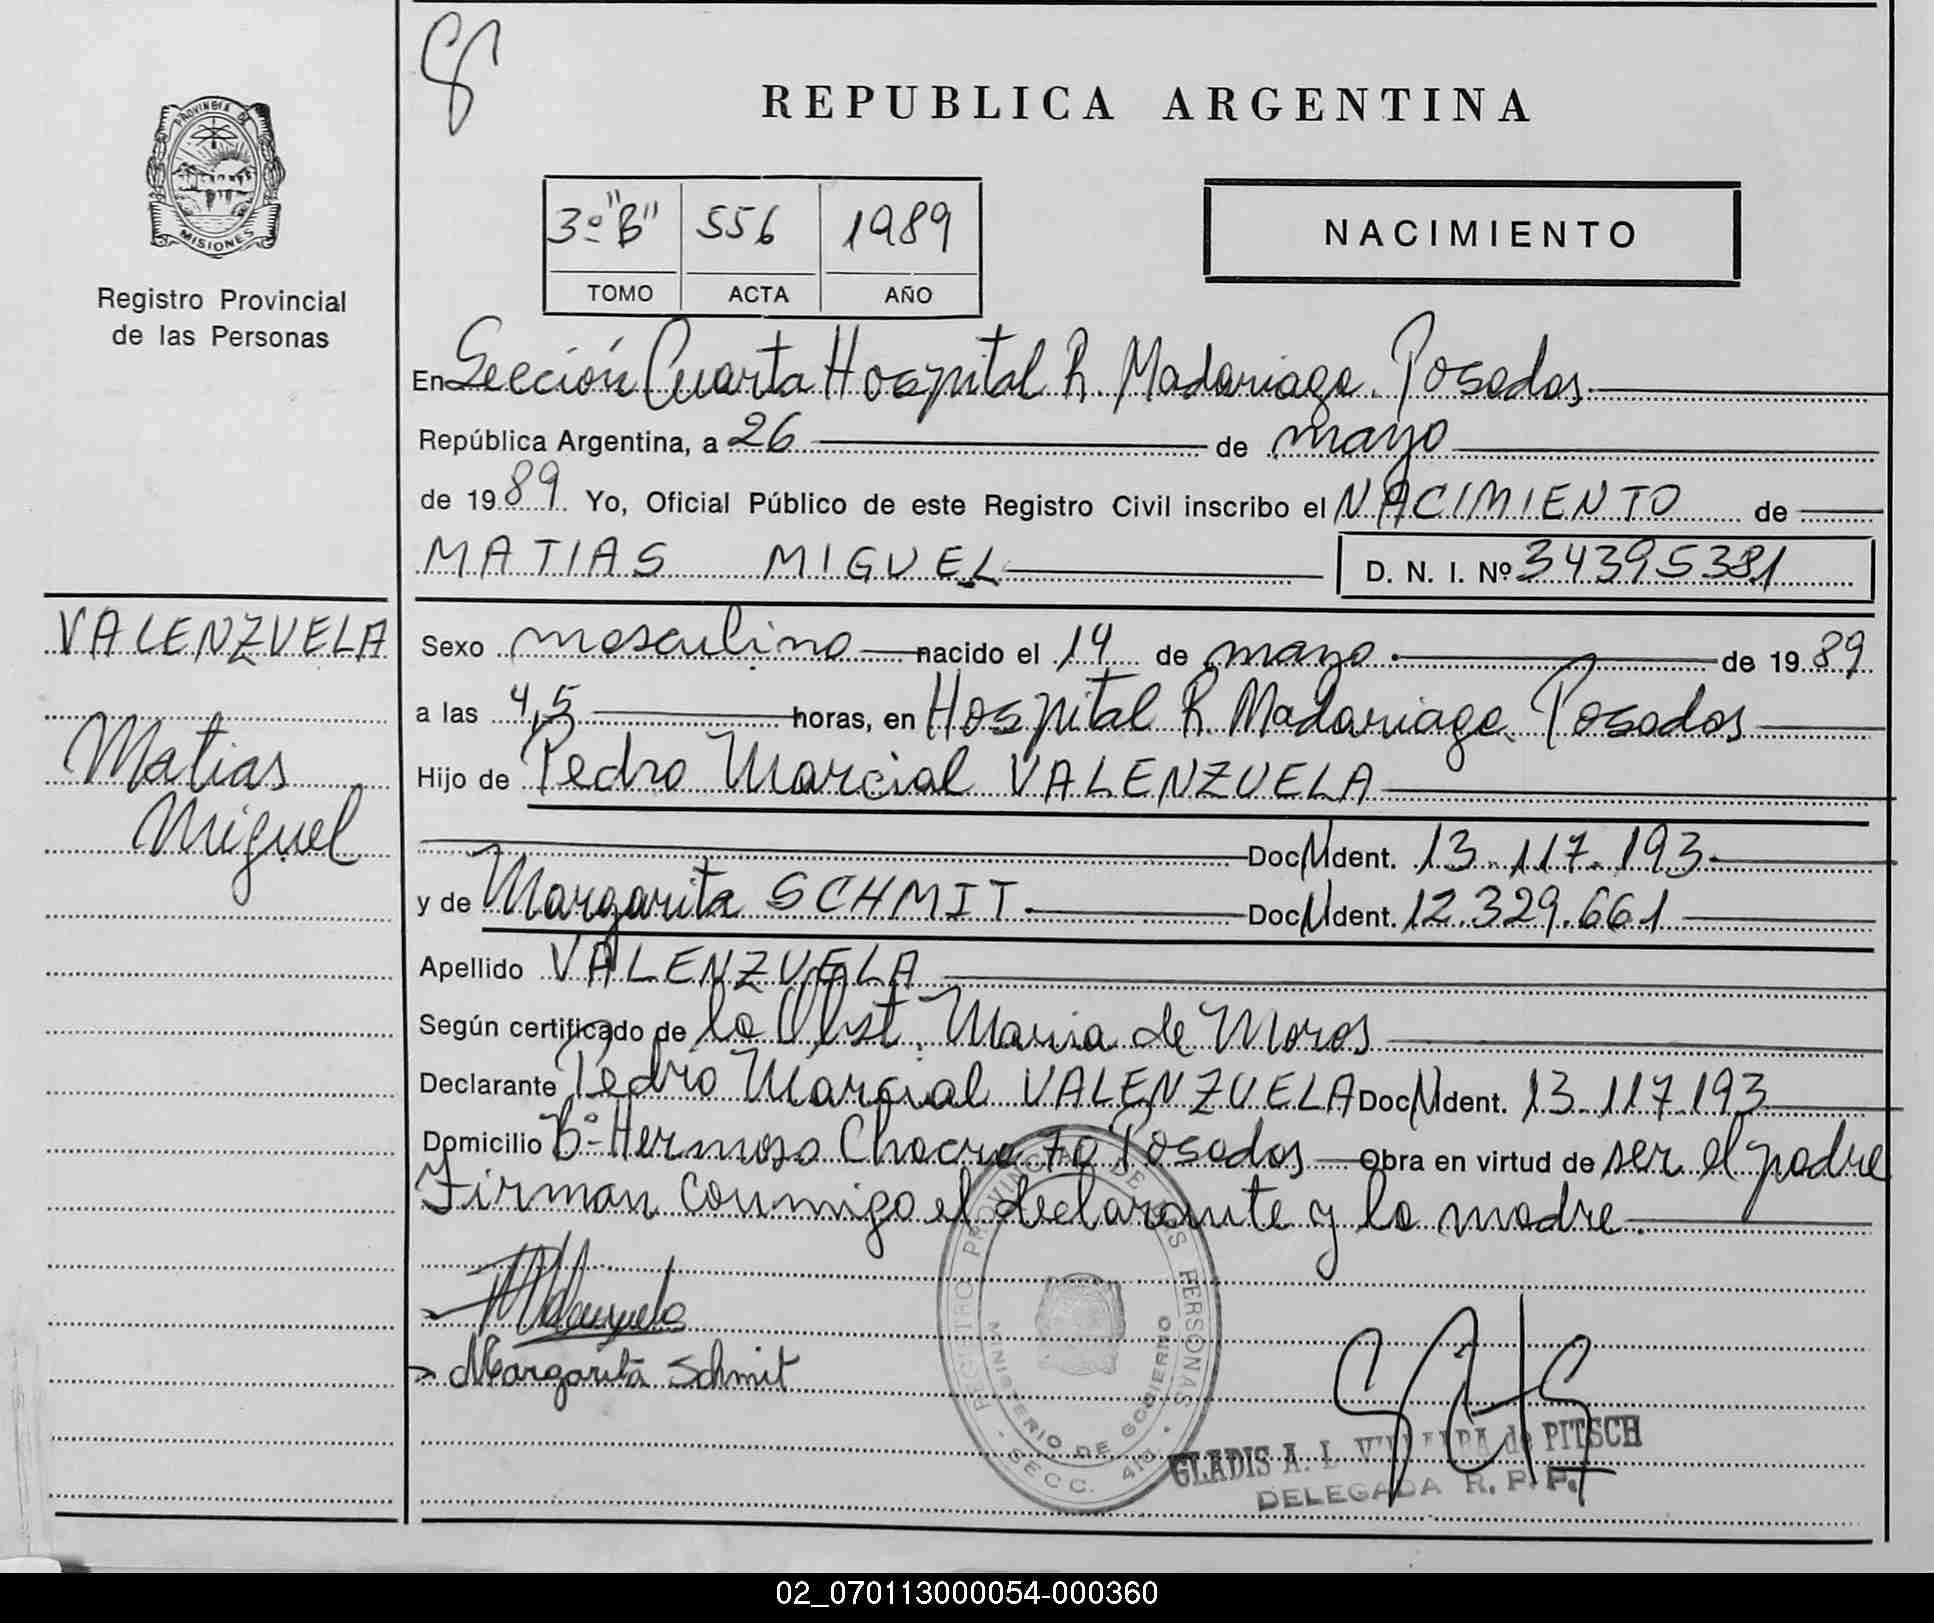 PROVINCIA DE
MISIONES
Registro Provincial
de las Personas
VALENZUELA
Matias
Miguel
REPUBLICA ARGENTINA
3º "B" 556 1989
TOMO ACTA AÑO
NACIMIENTO
En Sección Cuarta Hospital R. Madariaga. Posadas.
República Argentina, a 26 de mayo
de 1989. Yo, Oficial Público de este Registro Civil inscribo el NACIMIENTO de
MATIAS MIGUEL D. N. I. Nº 34395381
Sexo masculino nacido el 14 de mayo. de 1989
a las 4,5 horas, en Hospital R. Madariaga. Posadas
Hijo de Pedro Marcial VALENZUELA
Doc. Ident. 13.117.193.
y de Margarita SCHMIT. Doc. Ident. 12.329.661
Apellido VALENZUELA
Según certificado de la Obst. Maria de Moros
Declarante Pedro Marcial VALENZUELA Doc. Ident. 13.117.193
Domicilio Bº Hermoso Chacra 70 Posadas Obra en virtud de ser el padre
Firman conmigo el declarante y la madre.
Margarita Schmit
REGISTRO PROVINCIAL DE LAS PERSONAS
MINISTERIO DE GOBIERNO
SECC. 4ta.
GLADIS A. L. VILLALBA de PITSCH
DELEGADA R. P. P.
02_070113000054-000360